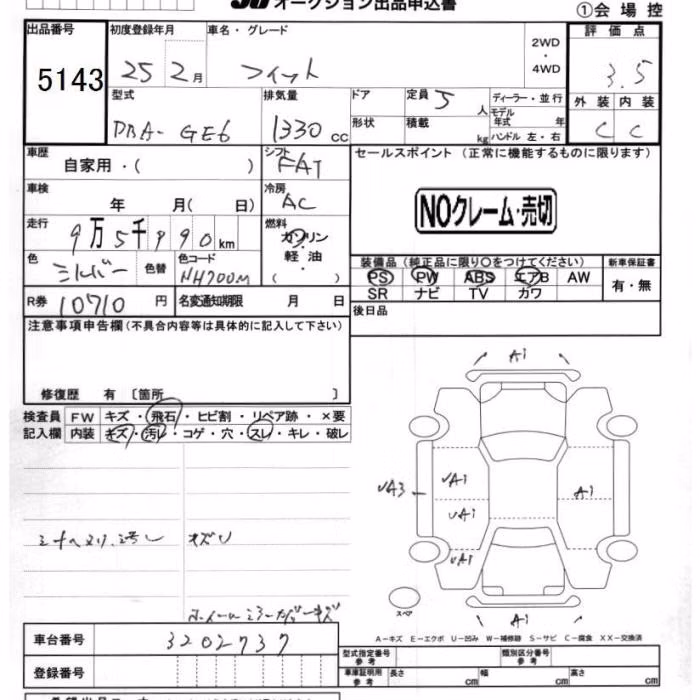 オークション出品申込書
①会場控
出品番号 初度登録年月 車名・グレード 2WD・4WD 評価点
5143 25 2月 フィット 3.5
型式 排気量 ドア 定員 5人 ディーラー・並行 外装 内装
DBA- GE6 1330cc 形状 積載 kg モデル年式 年 ハンドル 左・右 C C
車歴 シフト セールスポイント (正常に機能するものに限ります)
自家用・( ) FAT
車検 冷房
年 月( 日) AC NOクレーム・売切
走行 燃料
9万5千990km ガソリン・軽油・( )
色 色替 色コード 装備品 (純正品に限り○をつけてください) 新車保証書
シルバー NH700M PS PW ABS エアB AW 有・無
SR ナビ TV カワ
R券 10710円 名変通知期限 月 日 後日品
注意事項申告欄(不具合内容等は具体的に記入して下さい)
修復歴 有 〔箇所 〕
検査員 FW キズ・飛石・ヒビ割・リペア跡・×要
記入欄 内装 キズ・汚レ・コゲ・穴・スレ・キレ・破レ
A1
UA3 UA1 A1
UA1
キズU
スペア
A1
A-キズ E-エクボ U-凹み W-補修跡 S-サビ C-腐食 XX-交換済
車台番号 3202737
登録番号
型式指定番号 参考 類別区分番号 参考
車庫証明用 参考 長さ cm 幅 cm 高さ cm